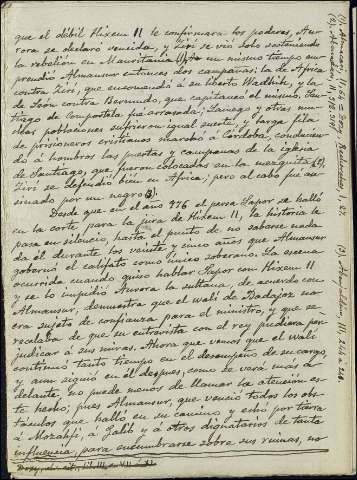 que el débil Hixem II le confirmara los poderes, Au-
rora se declaró vencida, y Ziri se vió solo sosteniendo
la rebelión en Mauritania (1). A un mismo tiempo em-
prendió Almansur entonces dos campañas: la de Africa
contra Ziri, que encomendó á su liberto Wadhih, y la
de León contra Bermudo, que capitaneó el mismo. San-
tiago de Compostela fué arrasada; Lamego y otras mu-
chas poblaciones sufrieron igual suerte, y larga fila
de prisioneros cristianos marchó á Córdoba, conducien-
do á hombros las puertas y campanas de la iglesia
de Santiago, que fueron colocadas en la mezquita (2).
Ziri se defendió bien en Africa; pero al cabo fué ase-
sinado por un negro (3).
Desde que en el año 976 el persa Sapor se halló
en la corte para la jura de Hixem II, la historia le
pasa en silencio, hasta el punto de no saberse nada
de él durante los veinte y cinco años que Almansur
gobernó el califato como único soberano. La escena
ocurrida cuando quiso hablar Sapor con Hixem II
y se lo impidió Aurora la sultana, de acuerdo con
Almansur, demuestra que el walí de Badajoz no
era sujeto de confianza para el ministro, y que se
recelaba de que su entrevista con el rey pudiera per-
judicar á sus miras. Ahora que vemos que el walí
continuó tanto tiempo en el desempeño de su cargo,
y aun siguió en él despues, como se verá mas a-
delante, no puede menos de llamar la atencion es-
te hecho; pues Almansur, que venció todos los obs-
táculos que halló en su camino y echó por tierra
á Mozahfi, á Galib y á otros dignatarios de tanta
influencia, para encumbrarse sobre sus ruinas, no